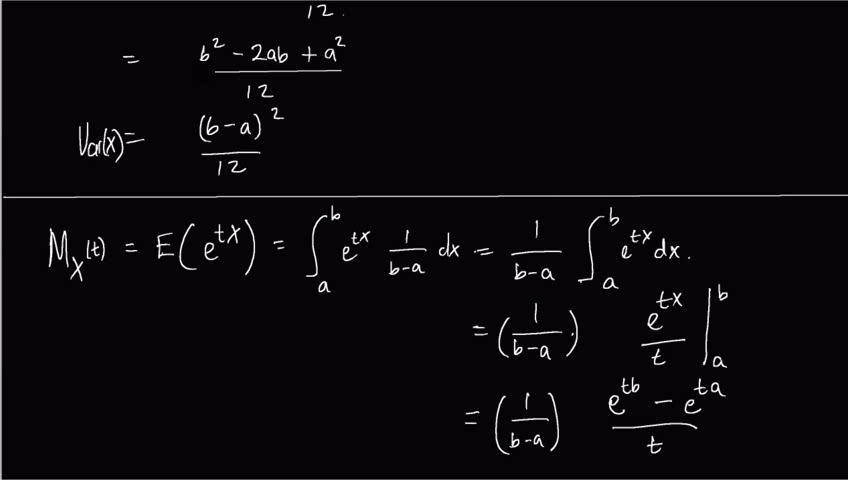 12.
= b² - 2ab + a² / 12
Var(X) = (b-a)² / 12
M_X(t) = E(e^{tX}) = ∫_a^b e^{tx} 1/(b-a) dx = 1/(b-a) ∫_a^b e^{tx} dx.
= (1/(b-a).) e^{tx}/t |_a^b
= (1/(b-a)) (e^{tb} - e^{ta})/t